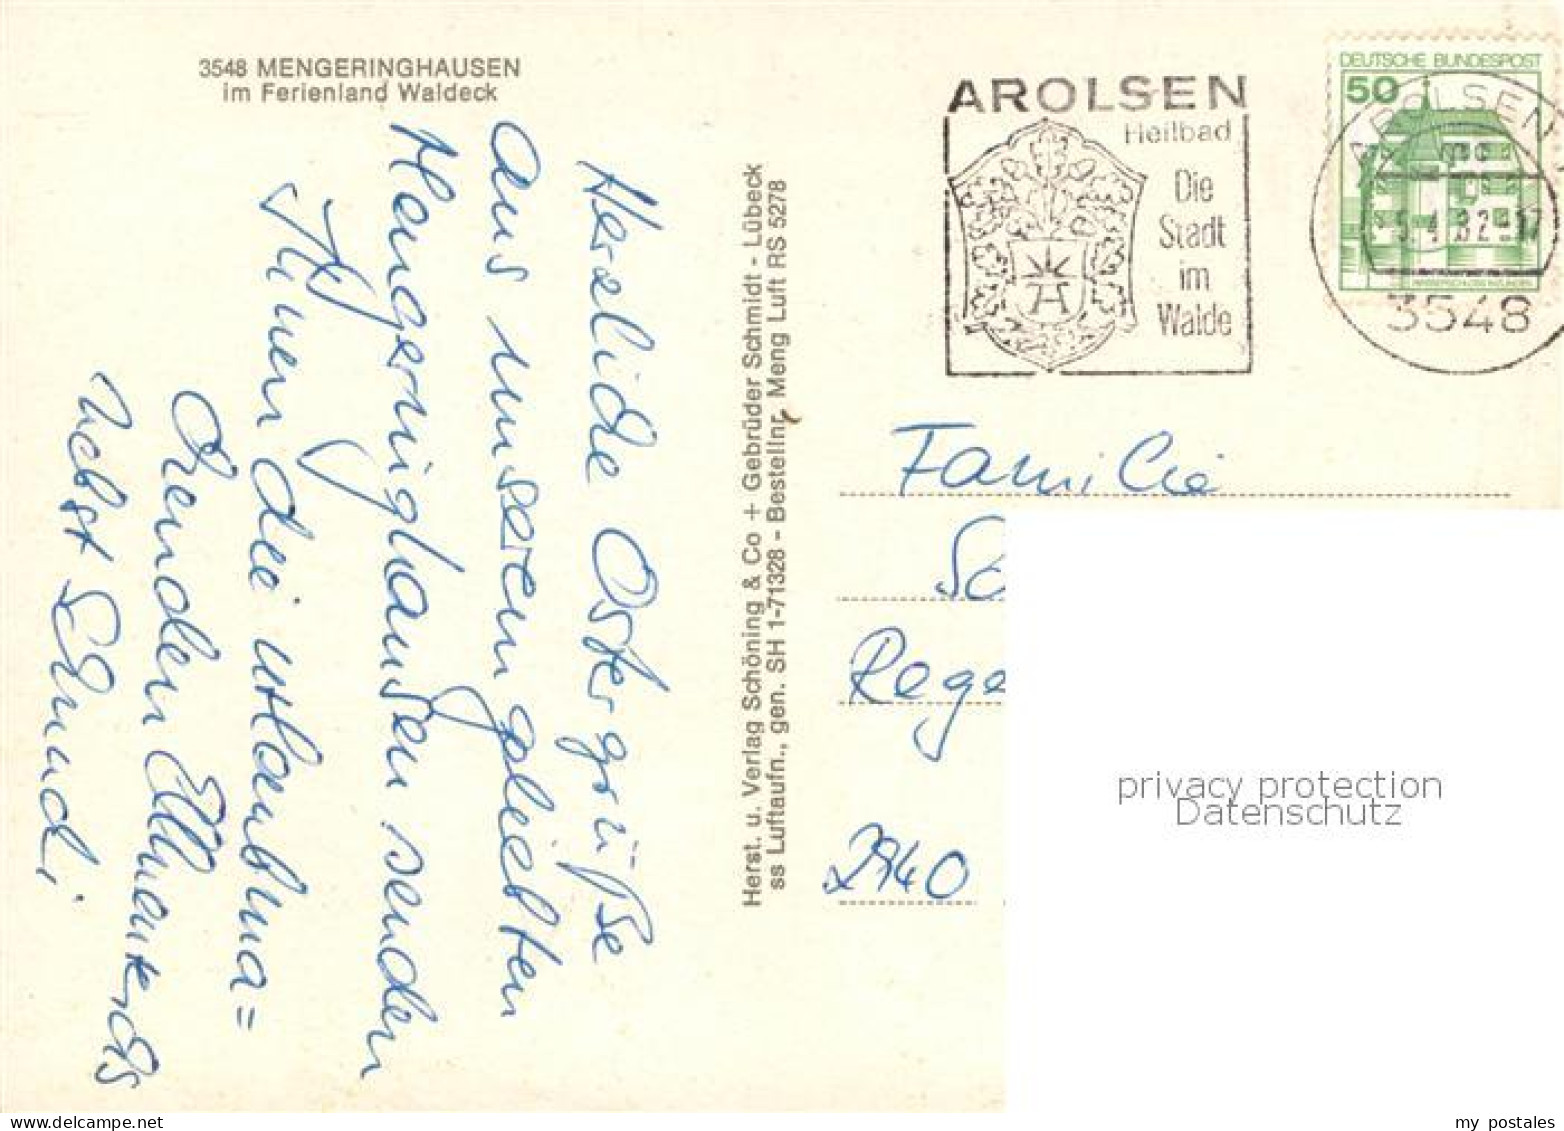 3548 MENGERINGHAUSEN
im Ferienland Waldeck
Herzliche Ostergrüße
aus unserem geliebten
Mengeringhausen senden
Ihnen die urlaubma=
chenden
nebst
Herst. u. Verlag Schöning & Co + Gebrüder Schmidt - Lübeck
ss Luftaufn., gen. SH 1-71328 - Bestellnr. Meng Luft RS 5278
AROLSEN
Heilbad
Die
Stadt
im
Walde
DEUTSCHE BUNDESPOST
50
AROLSEN
3548
Familie
Sc
Rege
2940
privacy protection
Datenschutz
my postales